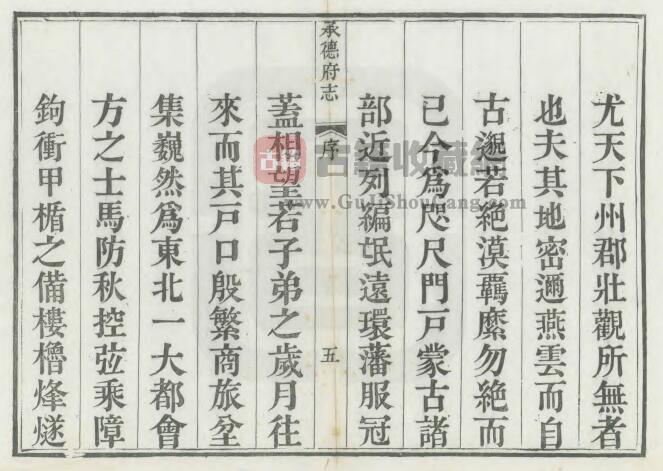 尤天下州郡壯觀所無者
也夫其地密邇燕雲而自
古邈若絕漠羈縻勿絕而
已今爲咫尺門戸蒙古諸
部近列編氓遠環藩服冠
承德府志
序
五
蓋相望若子弟之歲月往
來而其戸口殷繁商旅坌
集巍然爲東北一大都會
方之士馬防秋控弦乘障
鉤衝甲楯之備樓櫓烽燧
古籍收藏網
www.GuJiShouCang.com